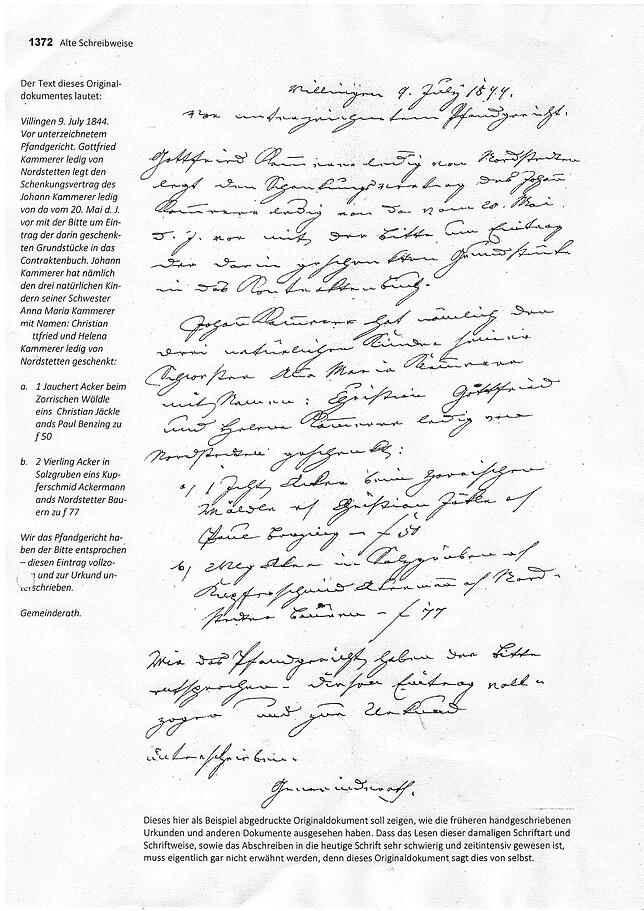 1372 Alte Schreibweise
Der Text dieses Original-
dokumentes lautet:
Villingen 9. July 1844.
Vor unterzeichnetem
Pfandgericht. Gottfried
Kammerer ledig von
Nordstetten legt den
Schenkungsvertrag des
Johann Kammerer ledig
von da vom 20. Mai d. J.
vor mit der Bitte um Ein-
trag der darin geschenk-
ten Grundstücke in das
Contraktenbuch. Johann
Kammerer hat nämlich
den drei natürlichen Kin-
dern seiner Schwester
Anna Maria Kammerer
mit Namen: Christian
ttfried und Helena
Kammerer ledig von
Nordstetten geschenkt:
a. 1 Jauchert Acker beim
Zorrischen Wäldle
eins Christian Jäckle
ands Paul Benzing zu
f 50
b. 2 Vierling Acker in
Salzgruben eins Kup-
ferschmid Ackermann
ands Nordstetter Bau-
ern zu f 77
Wir das Pfandgericht ha-
ben der Bitte entsprochen
– diesen Eintrag vollzo-
n und zur Urkund un-
terschrieben.
Gemeinderath.
Villingen 9. July 1844.
Vor unterzeichnetem Pfandgericht.
Gottfried Kammerer ledig von Nordstetten
legt den Schenkungsvertrag des Johann
Kammerer ledig von da vom 20. Mai
d. J. vor mit der Bitte um Eintrag
der darin geschenkten Grundstücke
in das Kontraktenbuch.
Johann Kammerer hat nämlich den
drei natürlichen Kinder seiner
Schwester Anna Maria Kammerer
mit Namen: Christian Gottfried
und Helena Kammerer ledig von
Nordstetten geschenkt:
a, 1 Jcht Acker beim Zorrischen
Wäldle es Christian Jäkle as
Paul Benzing – f 50
b, 2 Vlg Acker in Salzgruben es
Kupferschmid Ackermann as Nord-
stetter Bauern – f 77
Wir das Pfandgericht haben der Bitte
entsprochen – diesen Eintrag voll-
zogen und zur Urkund
unterschrieben.
Gemeinderath.
Dieses hier als Beispiel abgedruckte Originaldokument soll zeigen, wie die früheren handgeschriebenen
Urkunden und anderen Dokumente ausgesehen haben. Dass das Lesen dieser damaligen Schriftart und
Schriftweise, sowie das Abschreiben in die heutige Schrift sehr schwierig und zeitintensiv gewesen ist,
muss eigentlich gar nicht erwähnt werden, denn dieses Originaldokument sagt dies von selbst.